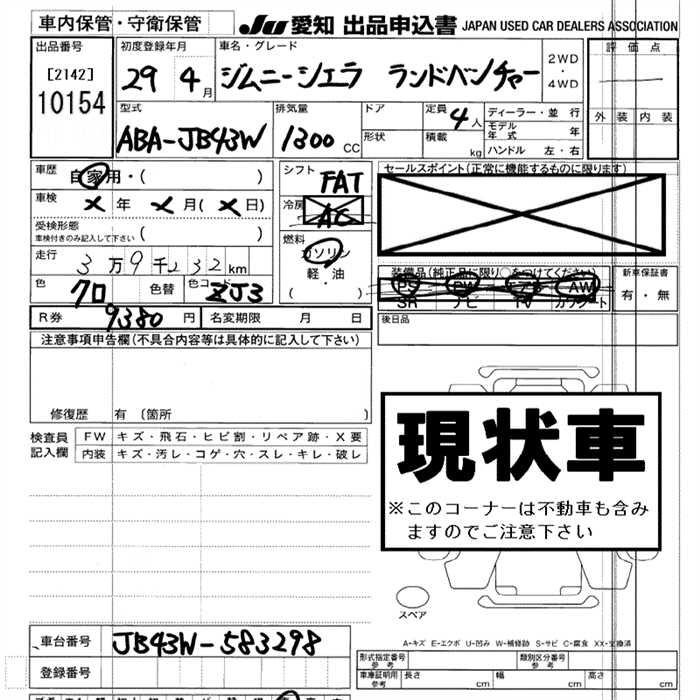 車内保管・守衛保管 JU 愛知 出品申込書 JAPAN USED CAR DEALERS ASSOCIATION
出品番号 初度登録年月 車名・グレード 2WD・4WD 評価点
[2142]
10154 29 4月 ジムニーシエラ ランドベンチャー
型式 排気量 ドア 定員 4人 ディーラー・並行 外装 内装
ABA-JB43W 1300 CC 形状 積載 kg モデル年式 年
ハンドル 左・右
車歴 自家用・( ) シフト FAT セールスポイント(正常に機能するものに限ります)
車検 X 年 X 月 ( X 日) 冷房 AC
受検形態 ( )
車検付きのみ記入して下さい
燃料 ガソリン
軽・油
( )
走行 3万9千232km 装備品(純正品に限り○をつけてください) 新車保証書
色 クロ 色替 色コード ZJ3 PS PW エアB AW 有・無
SR ナビ TV カワシート
R券 9380円 名変期限 月 日 後日品
注意事項申告欄(不具合内容等は具体的に記入して下さい)
修復歴 有 (箇所 )
検査員記入欄 FW キズ・飛石・ヒビ割・リペア跡・X要
内装 キズ・汚レ・コゲ・穴・スレ・キレ・破レ
現状車
※このコーナーは不動車も含み
ますのでご注意下さい
スペア
A-キズ E-エクボ U-凹み W-補修跡 S-サビ C-腐食 XX-交換済
車台番号 JB43W-583298
登録番号
形式指定番号 参考 類別区分番号 参考
車庫証明用 参考 長さ cm 幅 cm 高さ cm